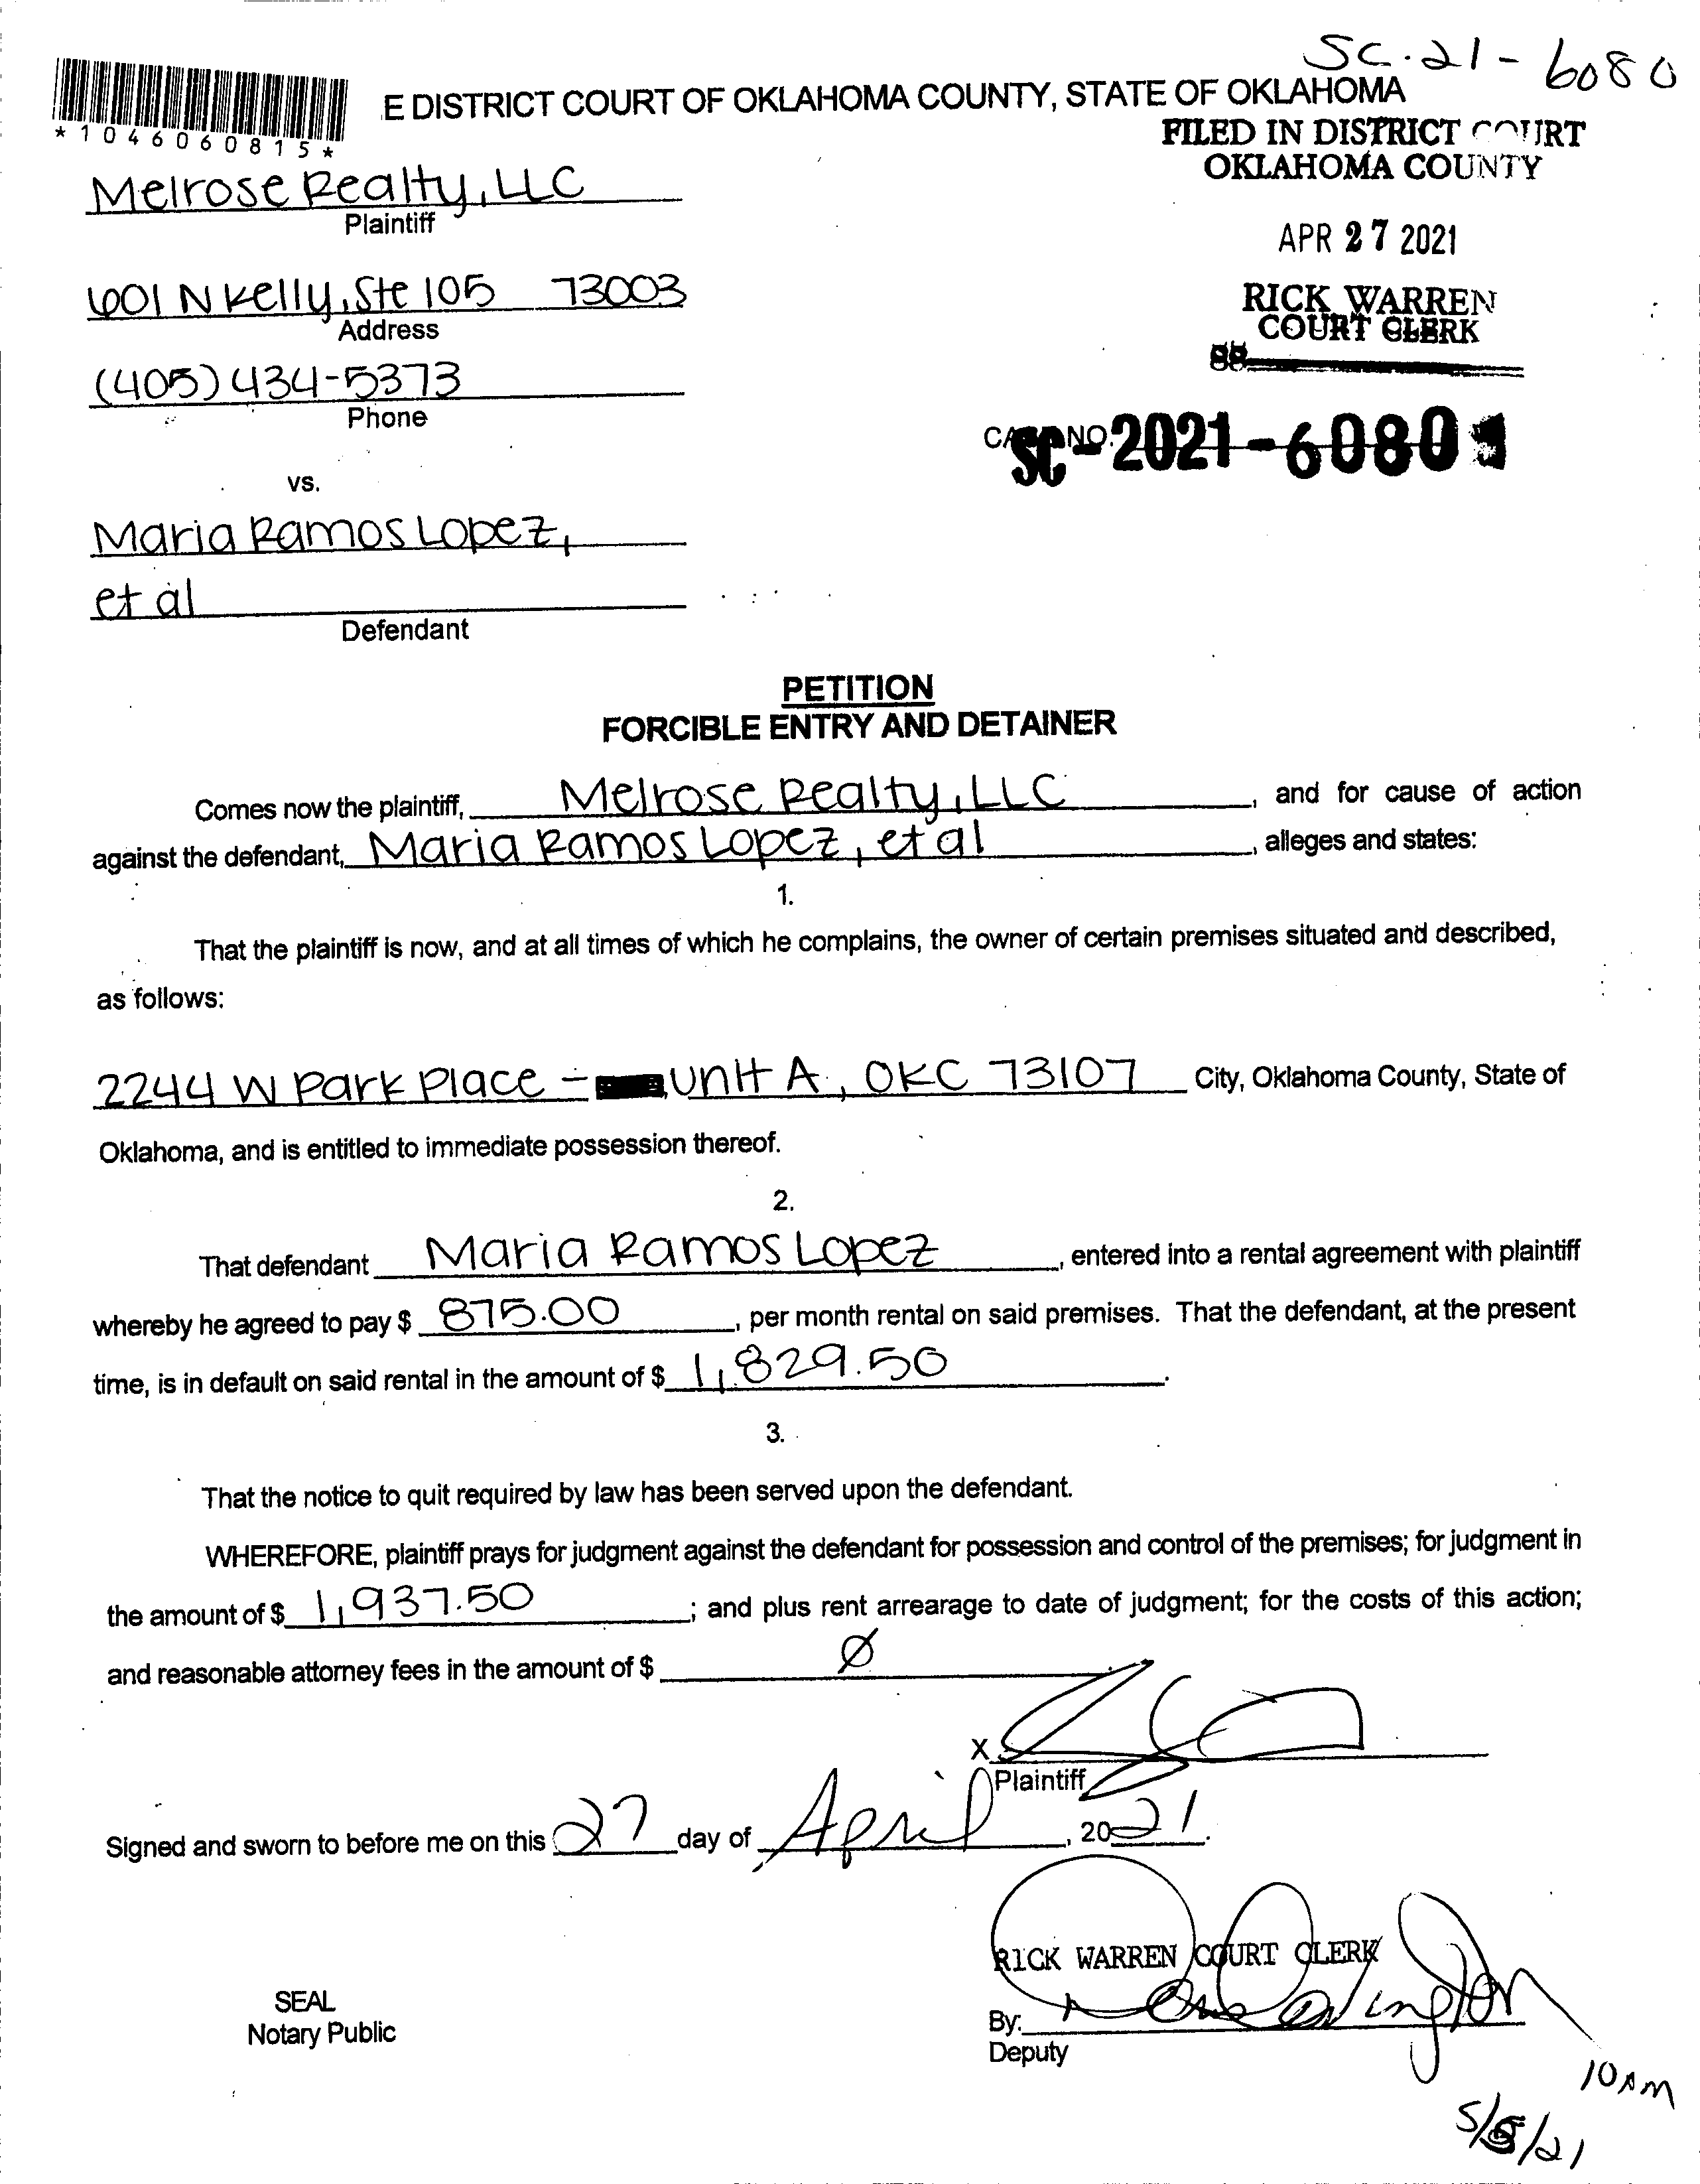 SC.21-6080
*1046060815*
E DISTRICT COURT OF OKLAHOMA COUNTY, STATE OF OKLAHOMA
FILED IN DISTRICT COURT
OKLAHOMA COUNTY
Melrose Realty, LLC
Plaintiff
APR 27 2021
601 N Kelly, Ste 105 73003
Address
RICK WARREN
COURT CLERK
(405) 434-5373
Phone
SC-2021-6080
vs.
Maria Ramos Lopez,
et al
Defendant
PETITION
FORCIBLE ENTRY AND DETAINER
Comes now the plaintiff, Melrose Realty, LLC, and for cause of action
against the defendant, Maria Ramos Lopez, et al, alleges and states:
1.
That the plaintiff is now, and at all times of which he complains, the owner of certain premises situated and described,
as follows:
2244 W Park Place - Unit A, OKC 73107 City, Oklahoma County, State of
Oklahoma, and is entitled to immediate possession thereof.
2.
That defendant Maria Ramos Lopez, entered into a rental agreement with plaintiff
whereby he agreed to pay $ 875.00, per month rental on said premises. That the defendant, at the present
time, is in default on said rental in the amount of $ 1,829.50.
3.
That the notice to quit required by law has been served upon the defendant.
WHEREFORE, plaintiff prays for judgment against the defendant for possession and control of the premises; for judgment in
the amount of $ 1,937.50; and plus rent arrearage to date of judgment; for the costs of this action;
and reasonable attorney fees in the amount of $ Ø
X
Plaintiff
Signed and sworn to before me on this 27 day of April, 2021.
RICK WARREN COURT CLERK
SEAL
Notary Public
By:
Deputy
10 AM